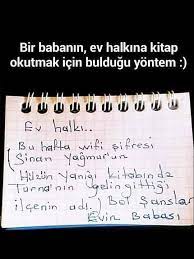 Bir babanın, ev halkına kitap
okutmak için bulduğu yöntem :)
Ev halkı..
Bu hafta wifi şifresi
Sinan Yağmur'un
Hüzün Yanığı kitabında
Turna'nın gelin gittiği
ilçenin adı. Bol Şanslar
Evin Babası